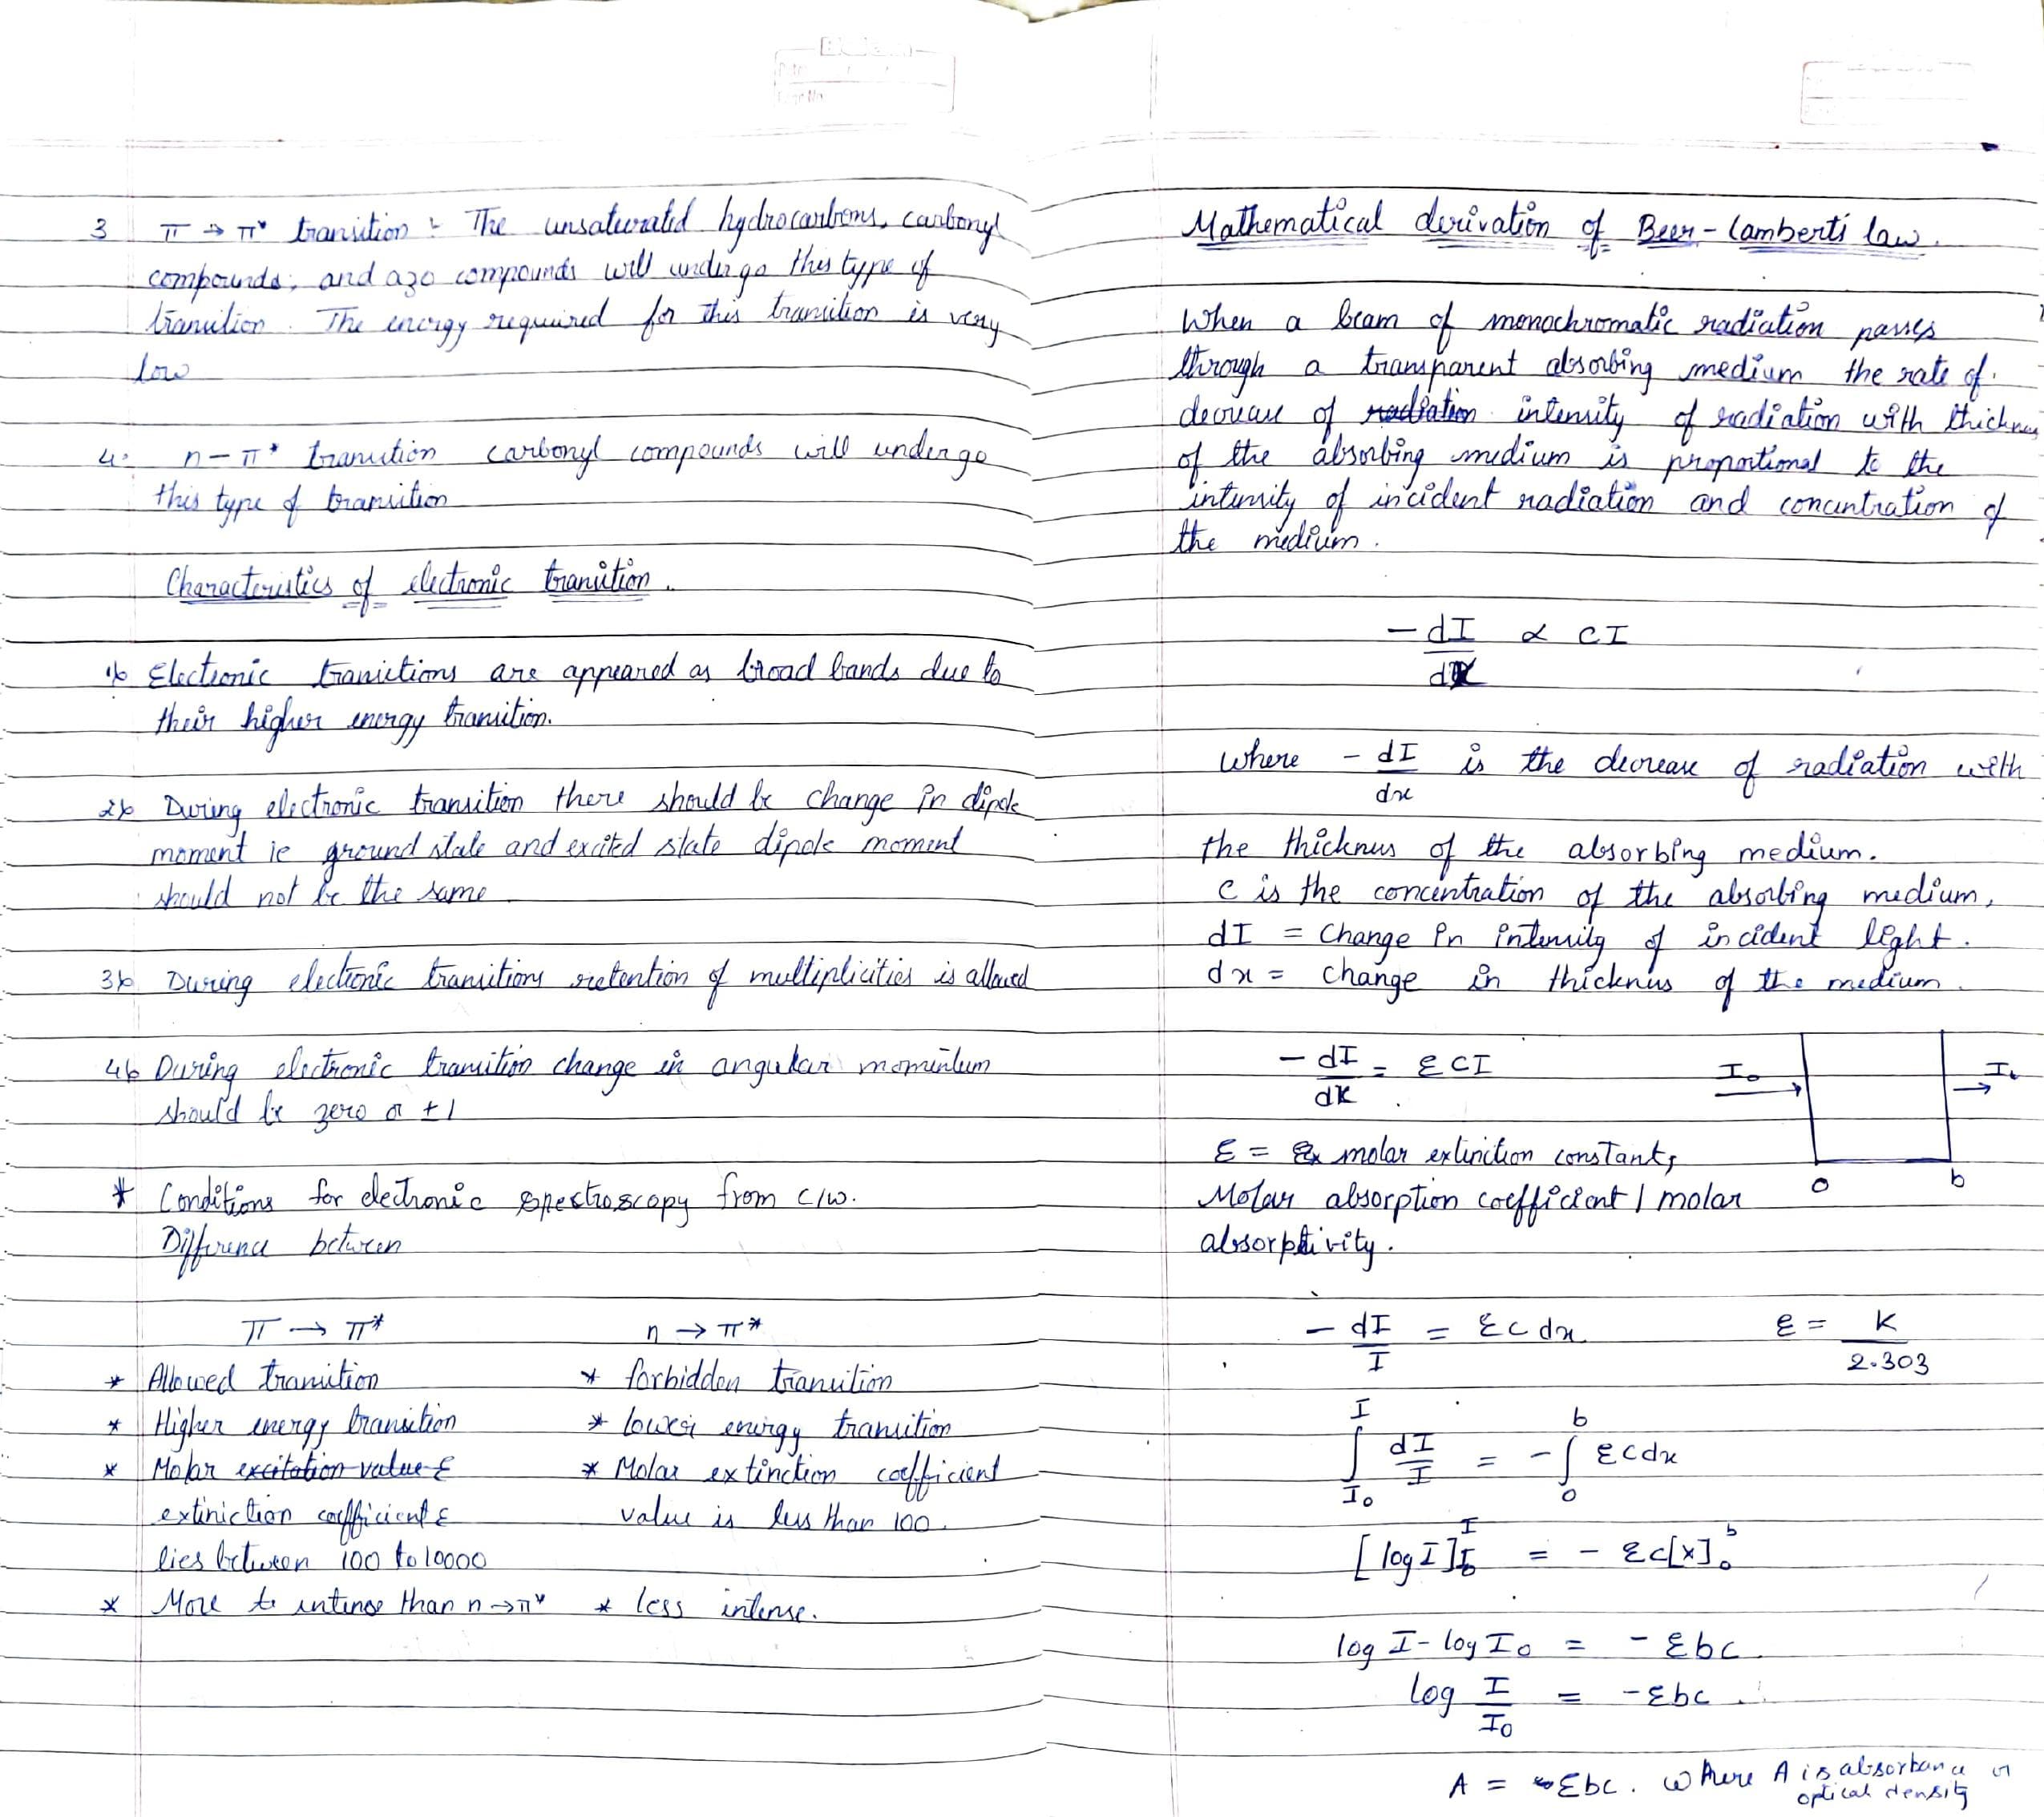 3 π → π* transition :- The unsaturated hydrocarbons, carbonyl
compounds, and azo compounds will undergo this type of
transition. The energy required for this transition is very
low
4. n-π* transition carbonyl compounds will undergo
this type of transition
Characteristics of electronic transition.
1) Electronic transitions are appeared as broad bands due to
their higher energy transition.
2) During electronic transition there should be change in dipole
moment ie ground state and excited state dipole moment
should not be the same
3) During electronic transitions retention of multiplicities is allowed
4) During electronic transition change in angular momentum
should be zero or ±1
* Conditions for electronic spectroscopy from c/w.
Difference between
π → π* n → π*
* Allowed transition * forbidden transition
* Higher energy transition * lower energy transition
* Molar excitation value ε * Molar extinction coefficient
extiniction coefficient ε value is less than 100.
lies between 100 to 10000
* More to intense than n→π* * less intense.
Mathematical derivation of Beer-Lamberts law.
When a beam of monochromatic radiation passes
through a transparent absorbing medium the rate of
decrease of radiation intensity of radiation with thickness
of the absorbing medium is proportional to the
intensity of incident radiation and concentration of
the medium.
-dI/dx ∝ cI
where -dI/dx is the decrease of radiation with
the thickness of the absorbing medium.
c is the concentration of the absorbing medium,
dI = Change in intensity of incident light.
dx = change in thickness of the medium.
-dI/dx = εcI
I₀ Iₜ
0 b
ε = molar extinction constant,
Molar absorption coefficient / molar
absorptivity.
-dI/I = εc dx ε = K/2.303
∫_{I₀}^{I} dI/I = -∫_{0}^{b} εcdx
[log I]_{I₀}^{I} = - εc[x]₀ᵇ
log I - log I₀ = - εbc
log I/I₀ = -εbc.
A = εbc. where A is absorbance or
optical density